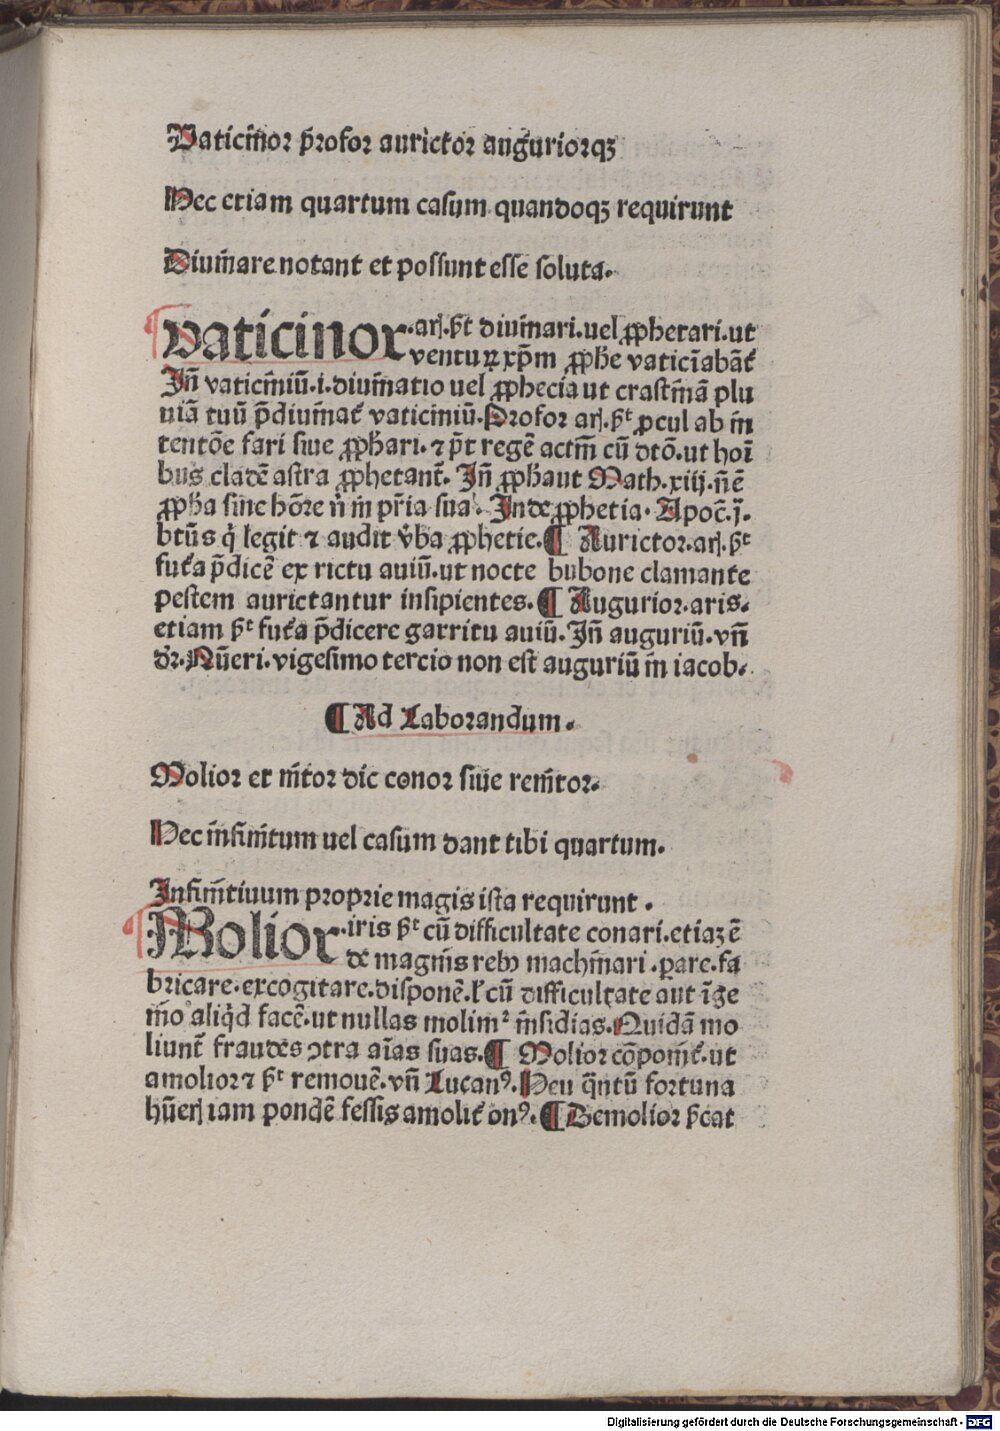 Vaticinor p̄rofor aurictor auguriorqꝫ
Hec etiam quartum casum quandoqꝫ requirunt
Diuinare notant et possunt esse soluta.
Vaticinor.arꝭ.p̄t diuinari.uel ꝓphetari.ut
ventuꝝ xp̄m ꝓphe vaticīabāt᷑
Iñ vaticiniū.i.diuinatio uel ꝓphecia ut crastinā plu
uiā tuū p̄diuinat᷑ vaticiniū.Profor arꝭ.p̄t ꝓcul ab in
tentōe fari siue ꝓphari.⁊ p̄t regē actm̄ cū dtō.ut hoī
bus cladē astra ꝓphetant᷑. Iñ ꝓphaut Math.xiij.ñ ē
ꝓpha sine hōre n̄ in pr̄ia sua. Inde ꝓphetia.Apoc̄.j.
btūs q̇ legit ⁊ audit v̄ba ꝓphetie.¶ Aurictor.arꝭ.p̄t
fut᷑a p̄dicē ex rictu auiū.ut nocte bubone clamante
pestem aurictantur insipientes.¶ Augurior.aris.
etiam p̄t fut᷑a p̄dicere garritu auiū.Iñ auguriū.vn̄
dr̄.Nūeri.vigesimo tercio non est auguriū in iacob.
¶ Ad Laborandum.
Molior et nītor dic conor siue renītor.
Hec infinitum uel casum dant tibi quartum.
Infinitiuum proprie magis ista requirunt.
Molior.iris p̄t cū difficultate conari.etiaꝫ ē
de magnis rebꝫ machinari.ꝑare.fa
bricare.excogitare.disponē.ł cū difficultate aut īge
nio aliq̇d facē.ut nullas molimꝛ insidias.Quidā mo
liunt᷑ fraudes ꝯtra aīas suas.¶ Molior cōponit᷑.ut
amolior ⁊ p̄t remouē.vn̄ Lucanꝰ.Heu q̄ntū fortuna
hūeꝭ iam pondē fessis amolit᷑ onꝰ.¶ Demolior p̄cat
Digitalisierung gefördert durch die Deutsche Forschungsgemeinschaft - DFG